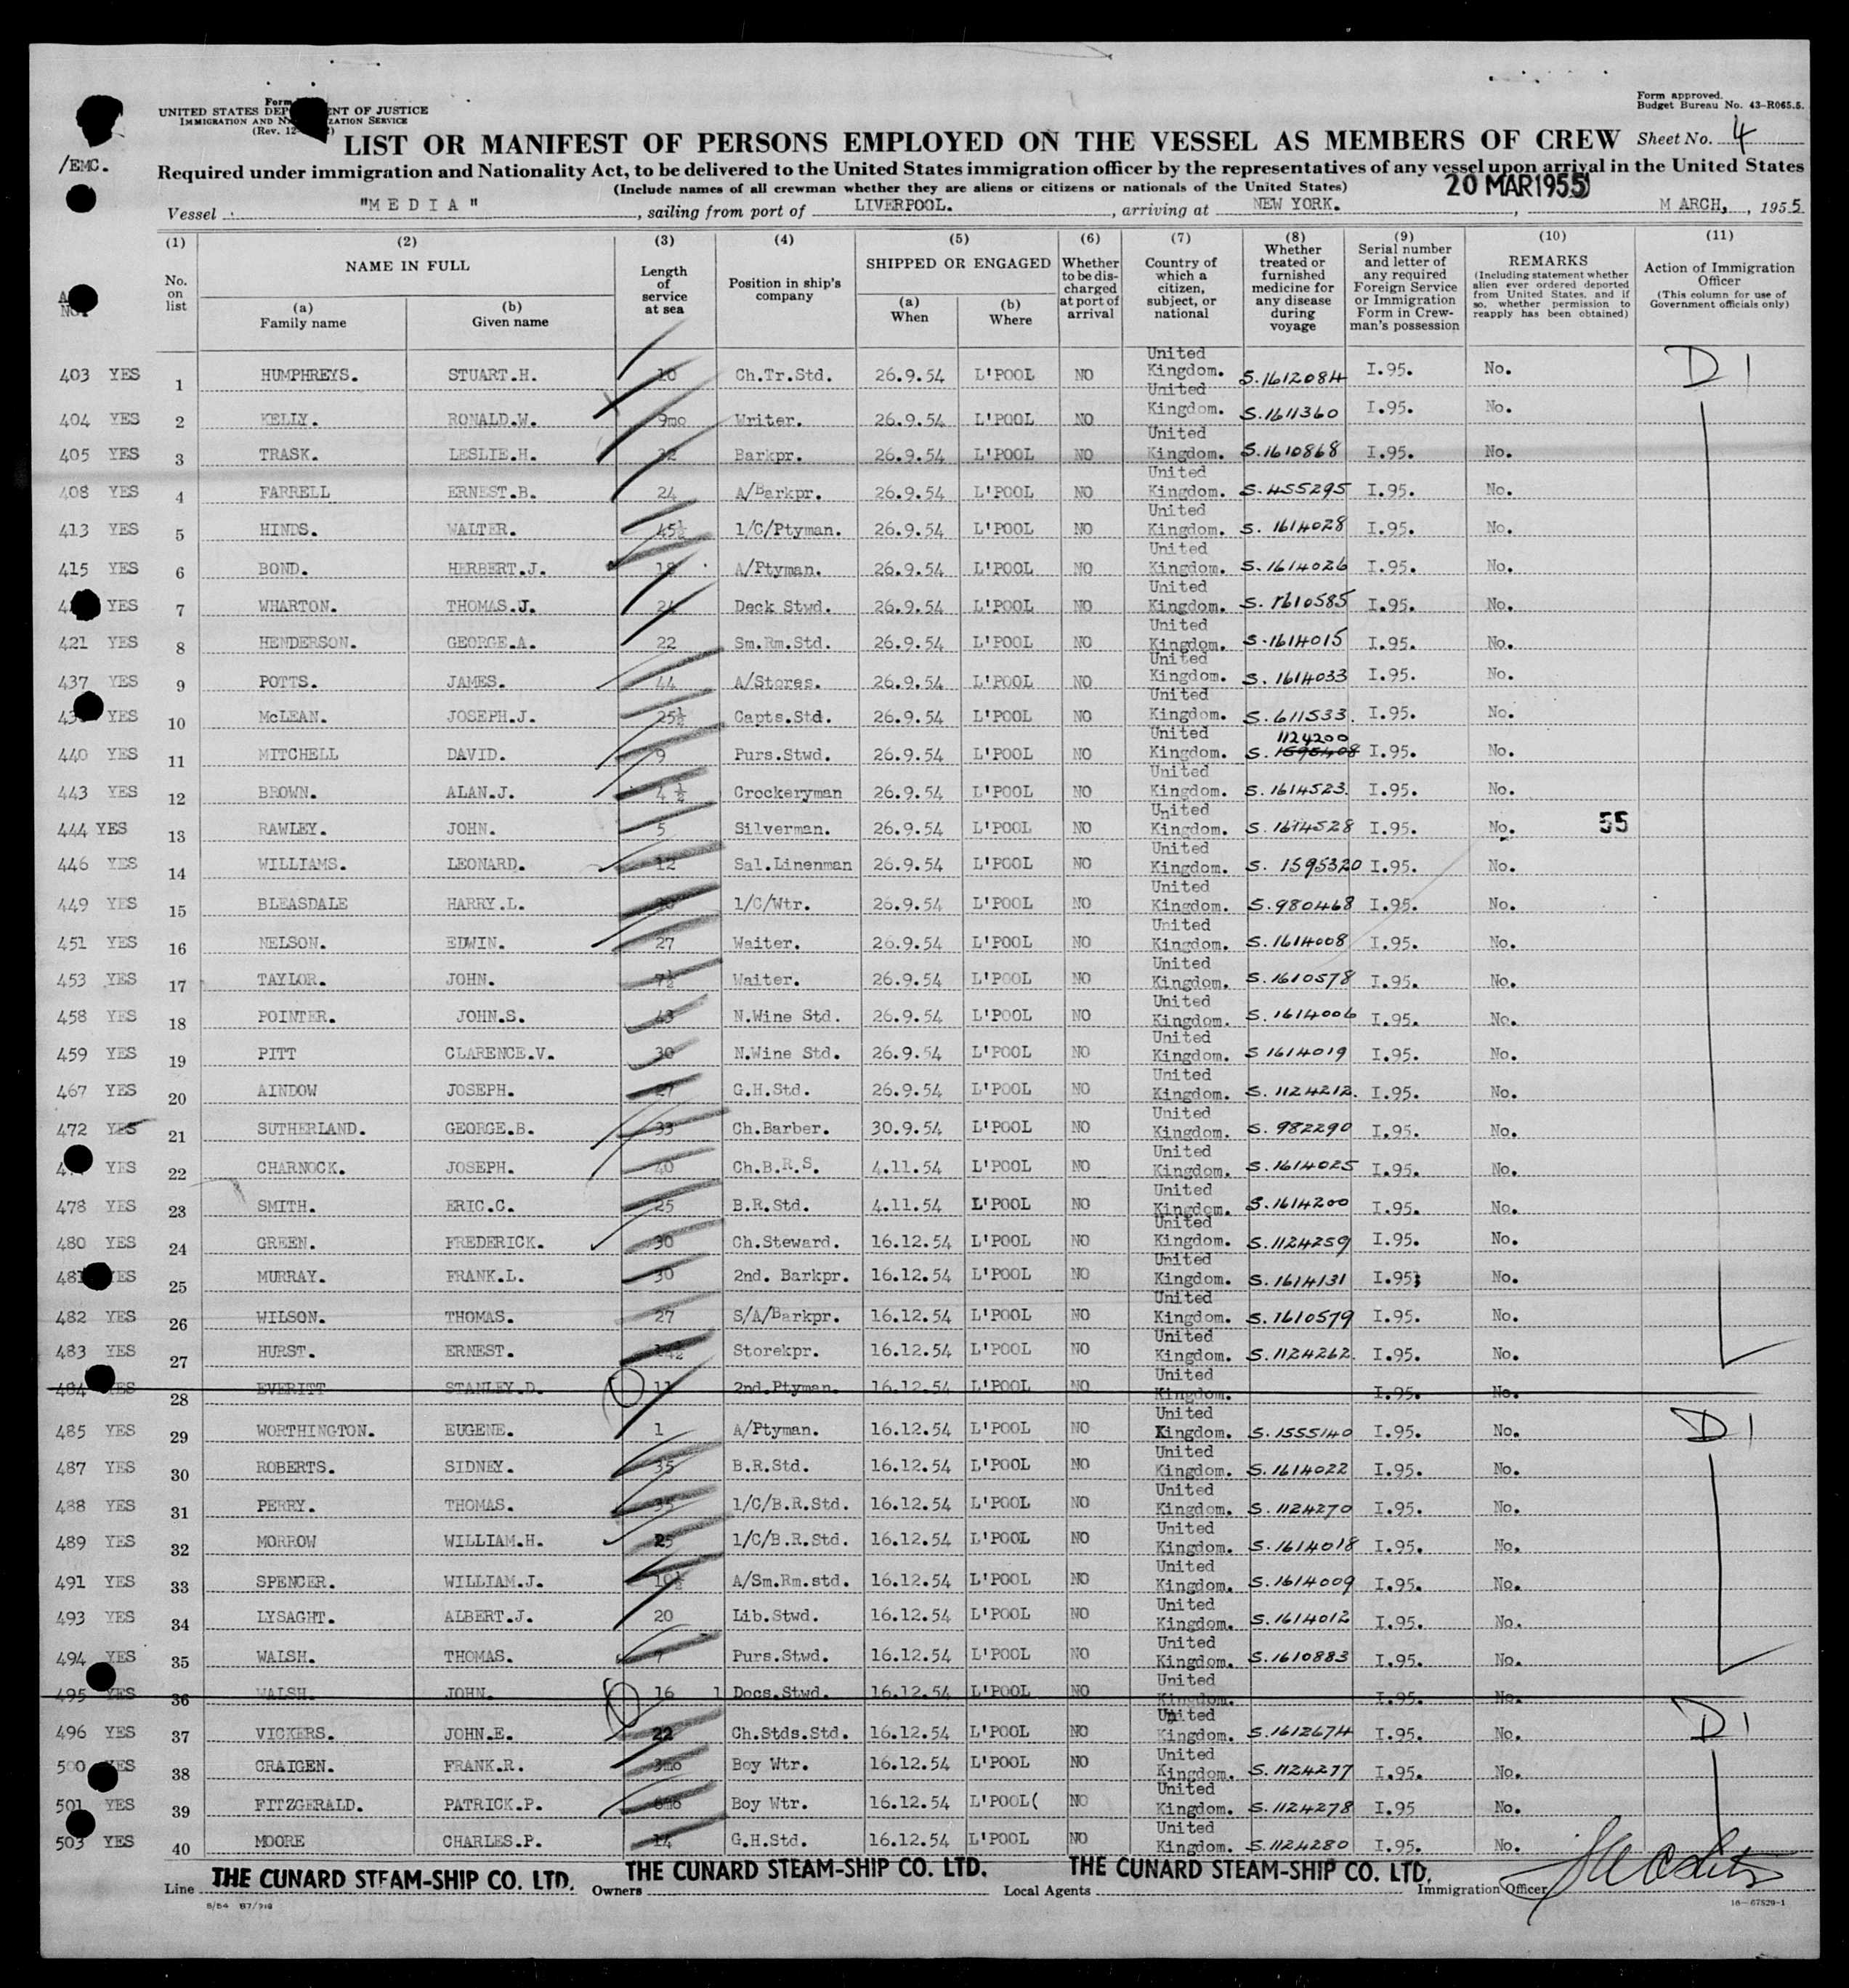 Form approved.
Budget Bureau No. 43-R065.5.
Form
UNITED STATES DEP NT OF JUSTICE
IMMIGRATION AND N ZATION SERVICE
(Rev. 12
LIST OR MANIFEST OF PERSONS EMPLOYED ON THE VESSEL AS MEMBERS OF CREW Sheet No. 4
/EMC.
Required under immigration and Nationality Act, to be delivered to the United States immigration officer by the representatives of any vessel upon arrival in the United States
(Include names of all crewman whether they are aliens or citizens or nationals of the United States)
20 MAR 1955
Vessel "MEDIA", sailing from port of LIVERPOOL., arriving at NEW YORK., MARCH, , 1955
(1) (2) (3) (4) (5) (6) (7) (8) (9) (10) (11)
No. on list
NAME IN FULL
(a) Family name
(b) Given name
Length of service at sea
Position in ship's company
SHIPPED OR ENGAGED
(a) When
(b) Where
Whether to be discharged at port of arrival
Country of which a citizen, subject, or national
Whether treated or furnished medicine for any disease during voyage
Serial number and letter of any required Foreign Service or Immigration Form in Crewman's possession
REMARKS
(Including statement whether alien ever ordered deported from United States, and if so, whether permission to reapply has been obtained)
Action of Immigration Officer
(This column for use of Government officials only)
403 YES 1 HUMPHREYS. STUART.H. 10 Ch.Tr.Std. 26.9.54 L'POOL NO United Kingdom. S.1612084 I.95. No. D 1
404 YES 2 KELLY. RONALD.W. 9mo Writer. 26.9.54 L'POOL NO United Kingdom. S.1611360 I.95. No.
405 YES 3 TRASK. LESLIE.H. Barkpr. 26.9.54 L'POOL NO United Kingdom. S.1610868 I.95. No.
408 YES 4 FARRELL ERNEST.B. 24 A/Barkpr. 26.9.54 L'POOL NO United Kingdom. S.455295 I.95. No.
413 YES 5 HINDS. WALTER. 45½ 1/C/Ptyman. 26.9.54 L'POOL NO United Kingdom. S. 1614028 I.95. No.
415 YES 6 BOND. HERBERT.J. 18 A/Ptyman. 26.9.54 L'POOL NO United Kingdom. S.1614026 I.95. No.
4 YES 7 WHARTON. THOMAS.J. 24 Deck Stwd. 26.9.54 L'POOL NO United Kingdom. S. 1610585 I.95. No.
421 YES 8 HENDERSON. GEORGE.A. 22 Sm.Rm.Std. 26.9.54 L'POOL NO United Kingdom. S.1614015 I.95. No.
437 YES 9 POTTS. JAMES. 44 A/Stores. 26.9.54 L'POOL NO United Kingdom. S. 1614033 I.95. No.
43 YES 10 McLEAN. JOSEPH.J. 25½ Capts.Std. 26.9.54 L'POOL NO United Kingdom. S.611533. I.95. No.
440 YES 11 MITCHELL DAVID. 9 Purs.Stwd. 26.9.54 L'POOL NO United Kingdom. S. 1595408 1124200 I.95. No.
443 YES 12 BROWN. ALAN.J. 4½ Crockeryman 26.9.54 L'POOL NO United Kingdom. S.1614523. I.95. No.
444 YES 13 RAWLEY. JOHN. 5 Silverman. 26.9.54 L'POOL NO United Kingdom. S.1614528 I.95. No. 55
446 YES 14 WILLIAMS. LEONARD. 12 Sal.Linenman 26.9.54 L'POOL NO United Kingdom. S. 1595320 I.95. No.
449 YES 15 BLEASDALE HARRY.L. 1/C/Wtr. 26.9.54 L'POOL NO United Kingdom. S.980468 I.95. No.
451 YES 16 NELSON. EDWIN. 27 Waiter. 26.9.54 L'POOL NO United Kingdom. S.1614008 I.95. No.
453 YES 17 TAYLOR. JOHN. 7½ Waiter. 26.9.54 L'POOL NO United Kingdom. S.1610578 I.95. No.
458 YES 18 POINTER. JOHN.S. 43 N.Wine Std. 26.9.54 L'POOL NO United Kingdom. S.1614006 I.95. No.
459 YES 19 PITT CLARENCE.V. 30 N.Wine Std. 26.9.54 L'POOL NO United Kingdom. S 1614019 I.95. No.
467 YES 20 AINDOW JOSEPH. 27 G.H.Std. 26.9.54 L'POOL NO United Kingdom. S. 1124212. I.95. No.
472 YES 21 SUTHERLAND. GEORGE.B. 33 Ch.Barber. 30.9.54 L'POOL NO United Kingdom. S. 982290 I.95. No.
4 YES 22 CHARNOCK. JOSEPH. 40 Ch.B.R.S. 4.11.54 L'POOL NO United Kingdom. S.1614025 I.95. No.
478 YES 23 SMITH. ERIC.C. 25 B.R.Std. 4.11.54 L'POOL NO United Kingdom. S.1614200 I.95. No.
480 YES 24 GREEN. FREDERICK. 30 Ch.Steward. 16.12.54 L'POOL NO United Kingdom. S.1124259 I.95. No.
481 YES 25 MURRAY. FRANK.L. 30 2nd. Barkpr. 16.12.54 L'POOL NO United Kingdom. S.1614131 I.95. No.
482 YES 26 WILSON. THOMAS. 27 S/A/Barkpr. 16.12.54 L'POOL NO United Kingdom. S.1610579 I.95. No.
483 YES 27 HURST. ERNEST. Storekpr. 16.12.54 L'POOL NO United Kingdom. S.1124262. I.95. No.
484 YES 28 EVERITT STANLEY.D. 11 2nd.Ptyman. 16.12.54 L'POOL NO United Kingdom. I.95. No.
485 YES 29 WORTHINGTON. EUGENE. 1 A/Ptyman. 16.12.54 L'POOL NO United Kingdom. S.1555140 I.95. No. D 1
487 YES 30 ROBERTS. SIDNEY. 35 B.R.Std. 16.12.54 L'POOL NO United Kingdom. S.1614022 I.95. No.
488 YES 31 PERRY. THOMAS. 35 1/C/B.R.Std. 16.12.54 L'POOL NO United Kingdom. S.1124270 I.95. No.
489 YES 32 MORROW WILLIAM.H. 25 1/C/B.R.Std. 16.12.54 L'POOL NO United Kingdom. S.1614018 I.95. No.
491 YES 33 SPENCER. WILLIAM.J. 10½ A/Sm.Rm.std. 16.12.54 L'POOL NO United Kingdom. S.1614009 I.95. No.
493 YES 34 LYSAGHT. ALBERT.J. 20 Lib.Stwd. 16.12.54 L'POOL NO United Kingdom. S.1614012 I.95. No.
494 YES 35 WALSH. THOMAS. 7 Purs.Stwd. 16.12.54 L'POOL NO United Kingdom. S.1610883 I.95. No.
495 YES 36 WALSH. JOHN. 16 1 Docs.Stwd. 16.12.54 L'POOL NO United Kingdom. I.95. No.
496 YES 37 VICKERS. JOHN.E. 22 Ch.Stds.Std. 16.12.54 L'POOL NO United Kingdom. S.1612674 I.95. No. D 1
500 YES 38 CRAIGEN. FRANK.R. 3mo Boy Wtr. 16.12.54 L'POOL NO United Kingdom. S.1124277 I.95. No.
501 YES 39 FITZGERALD. PATRICK.P. 6mo Boy Wtr. 16.12.54 L'POOL( NO United Kingdom. S.1124278 I.95 No.
503 YES 40 MOORE CHARLES.P. 14 G.H.Std. 16.12.54 L'POOL NO United Kingdom. S.1124280 I.95. No.
Line THE CUNARD STEAM-SHIP CO. LTD. Owners THE CUNARD STEAM-SHIP CO. LTD. Local Agents THE CUNARD STEAM-SHIP CO. LTD. Immigration Officer
16—67529-1